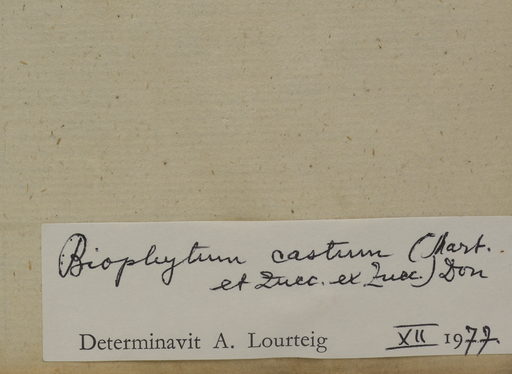 Biophytum castum (Mart.
et Zucc. ex Zucc.) Don
Determinavit A. Lourteig XII 1977.